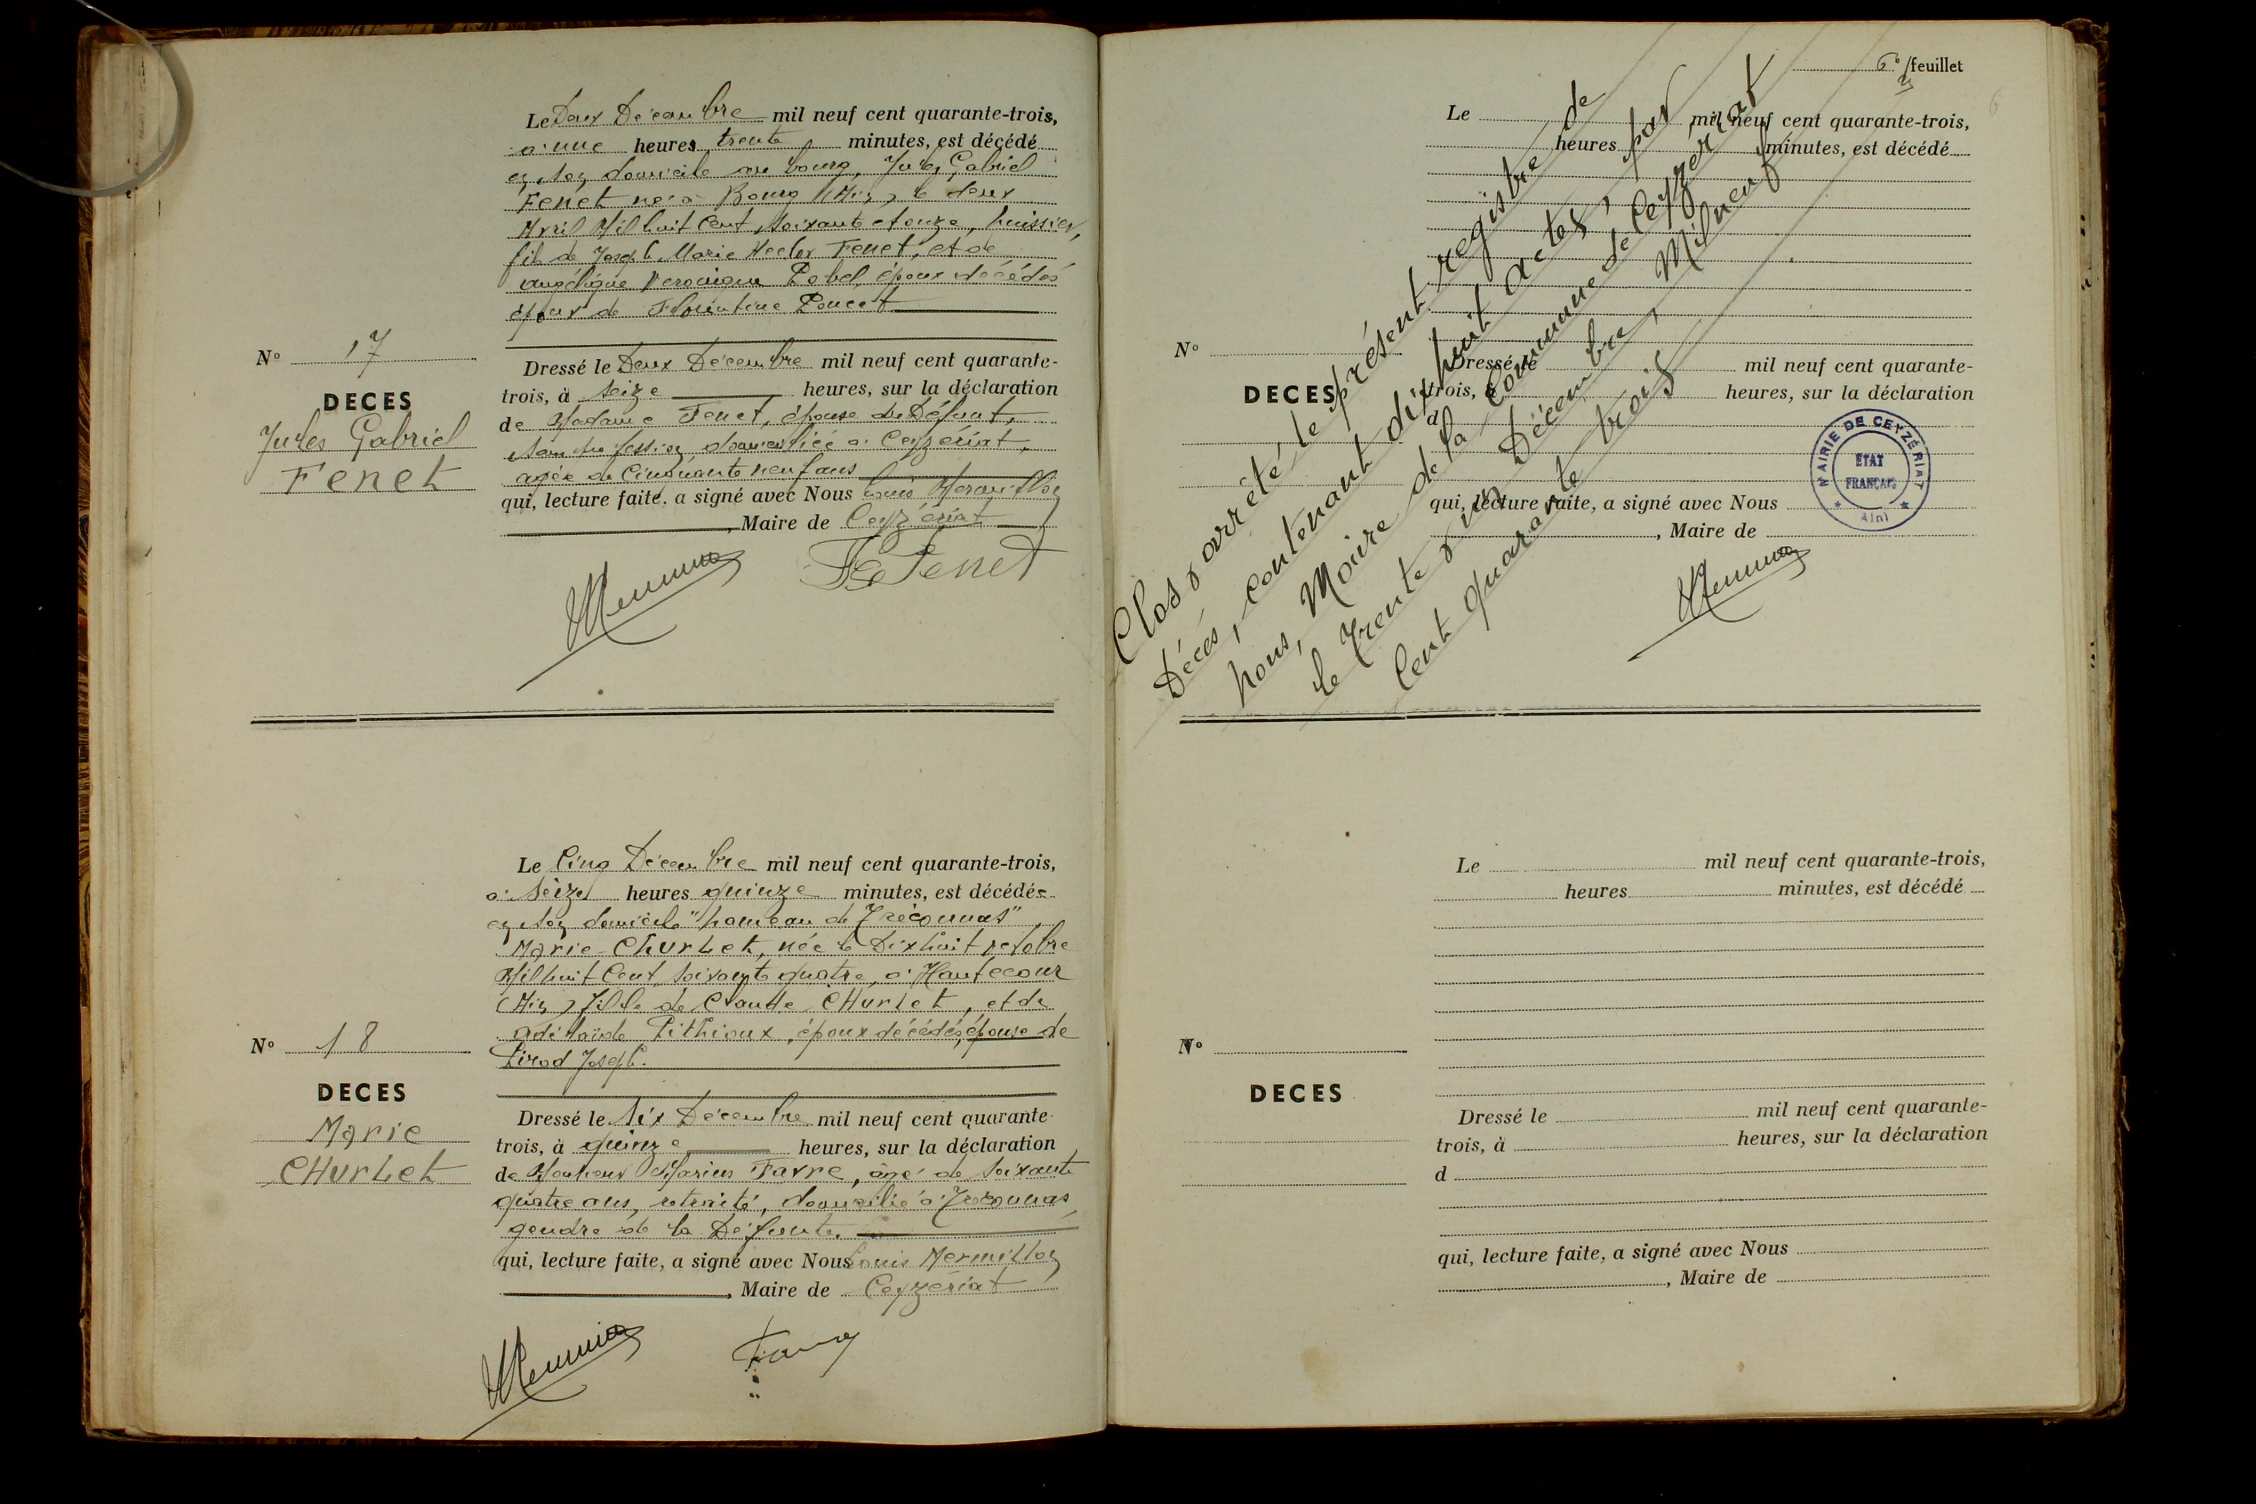 Le Deux Décembre mil neuf cent quarante-trois,
à une heures trente minutes, est décédé
en son domicile au bourg, Jules Gabriel
Fenet né à Bourg (Ain) le deux
Avril Mil huit Cent soixante et onze, huissier,
fils de Joseph Marie Hector Fenet, et de
Angélique Véronique Pobel, époux décédés
époux de Florentine Poncet
N° 17
DECES
Jules Gabriel
Fenet
Dressé le Deux Décembre mil neuf cent quarante-
trois, à seize heures, sur la déclaration
de Madame Fenet, épouse du Défunt,
sans profession, domiciliée à Ceyzériat,
agée de Cinquante neuf ans
qui, lecture faite, a signé avec Nous Louis Mermillon
, Maire de Ceyzériat
Fenet
Le Cinq Décembre mil neuf cent quarante-trois,
à seize heures quinze minutes, est décédée
en son domicile "hameau de Tréconnas"
Marie Churlet, née le Dix huit octobre
Mil huit Cent soixante quatre, à Hautecour
(Ain) fille de Claude Churlet, et de
Adélaïde Pithioux, époux décédés, épouse de
Pirod Joseph.
N° 18
DECES
Marie
CHurLet
Dressé le Six Décembre mil neuf cent quarante-
trois, à quinze heures, sur la déclaration
de Monsieur Marius Favre, âgé de soixante
quatre ans, retraité, domicilié à Tréconnas,
gendre de la Défunte.
qui, lecture faite, a signé avec Nous Louis Mermillon
, Maire de Ceyzériat
6e feuillet
6
Le mil neuf cent quarante-trois,
heures minutes, est décédé
N°
DECES
Dressé le mil neuf cent quarante-
trois, à heures, sur la déclaration
d
qui, lecture faite, a signé avec Nous
, Maire de
Clos & arrêté le présent registre de
Décés, contenant dix huit actes, par
nous, Maire de la Commune de Ceyzériat
le Trente & un Décembre, Mil neuf
Cent quarante trois
MAIRIE DE CEYZÉRIAT
ETAT
FRANÇAIS
* (Ain) *
Le mil neuf cent quarante-trois,
heures minutes, est décédé
N°
DECES
Dressé le mil neuf cent quarante-
trois, à heures, sur la déclaration
d
qui, lecture faite, a signé avec Nous
, Maire de